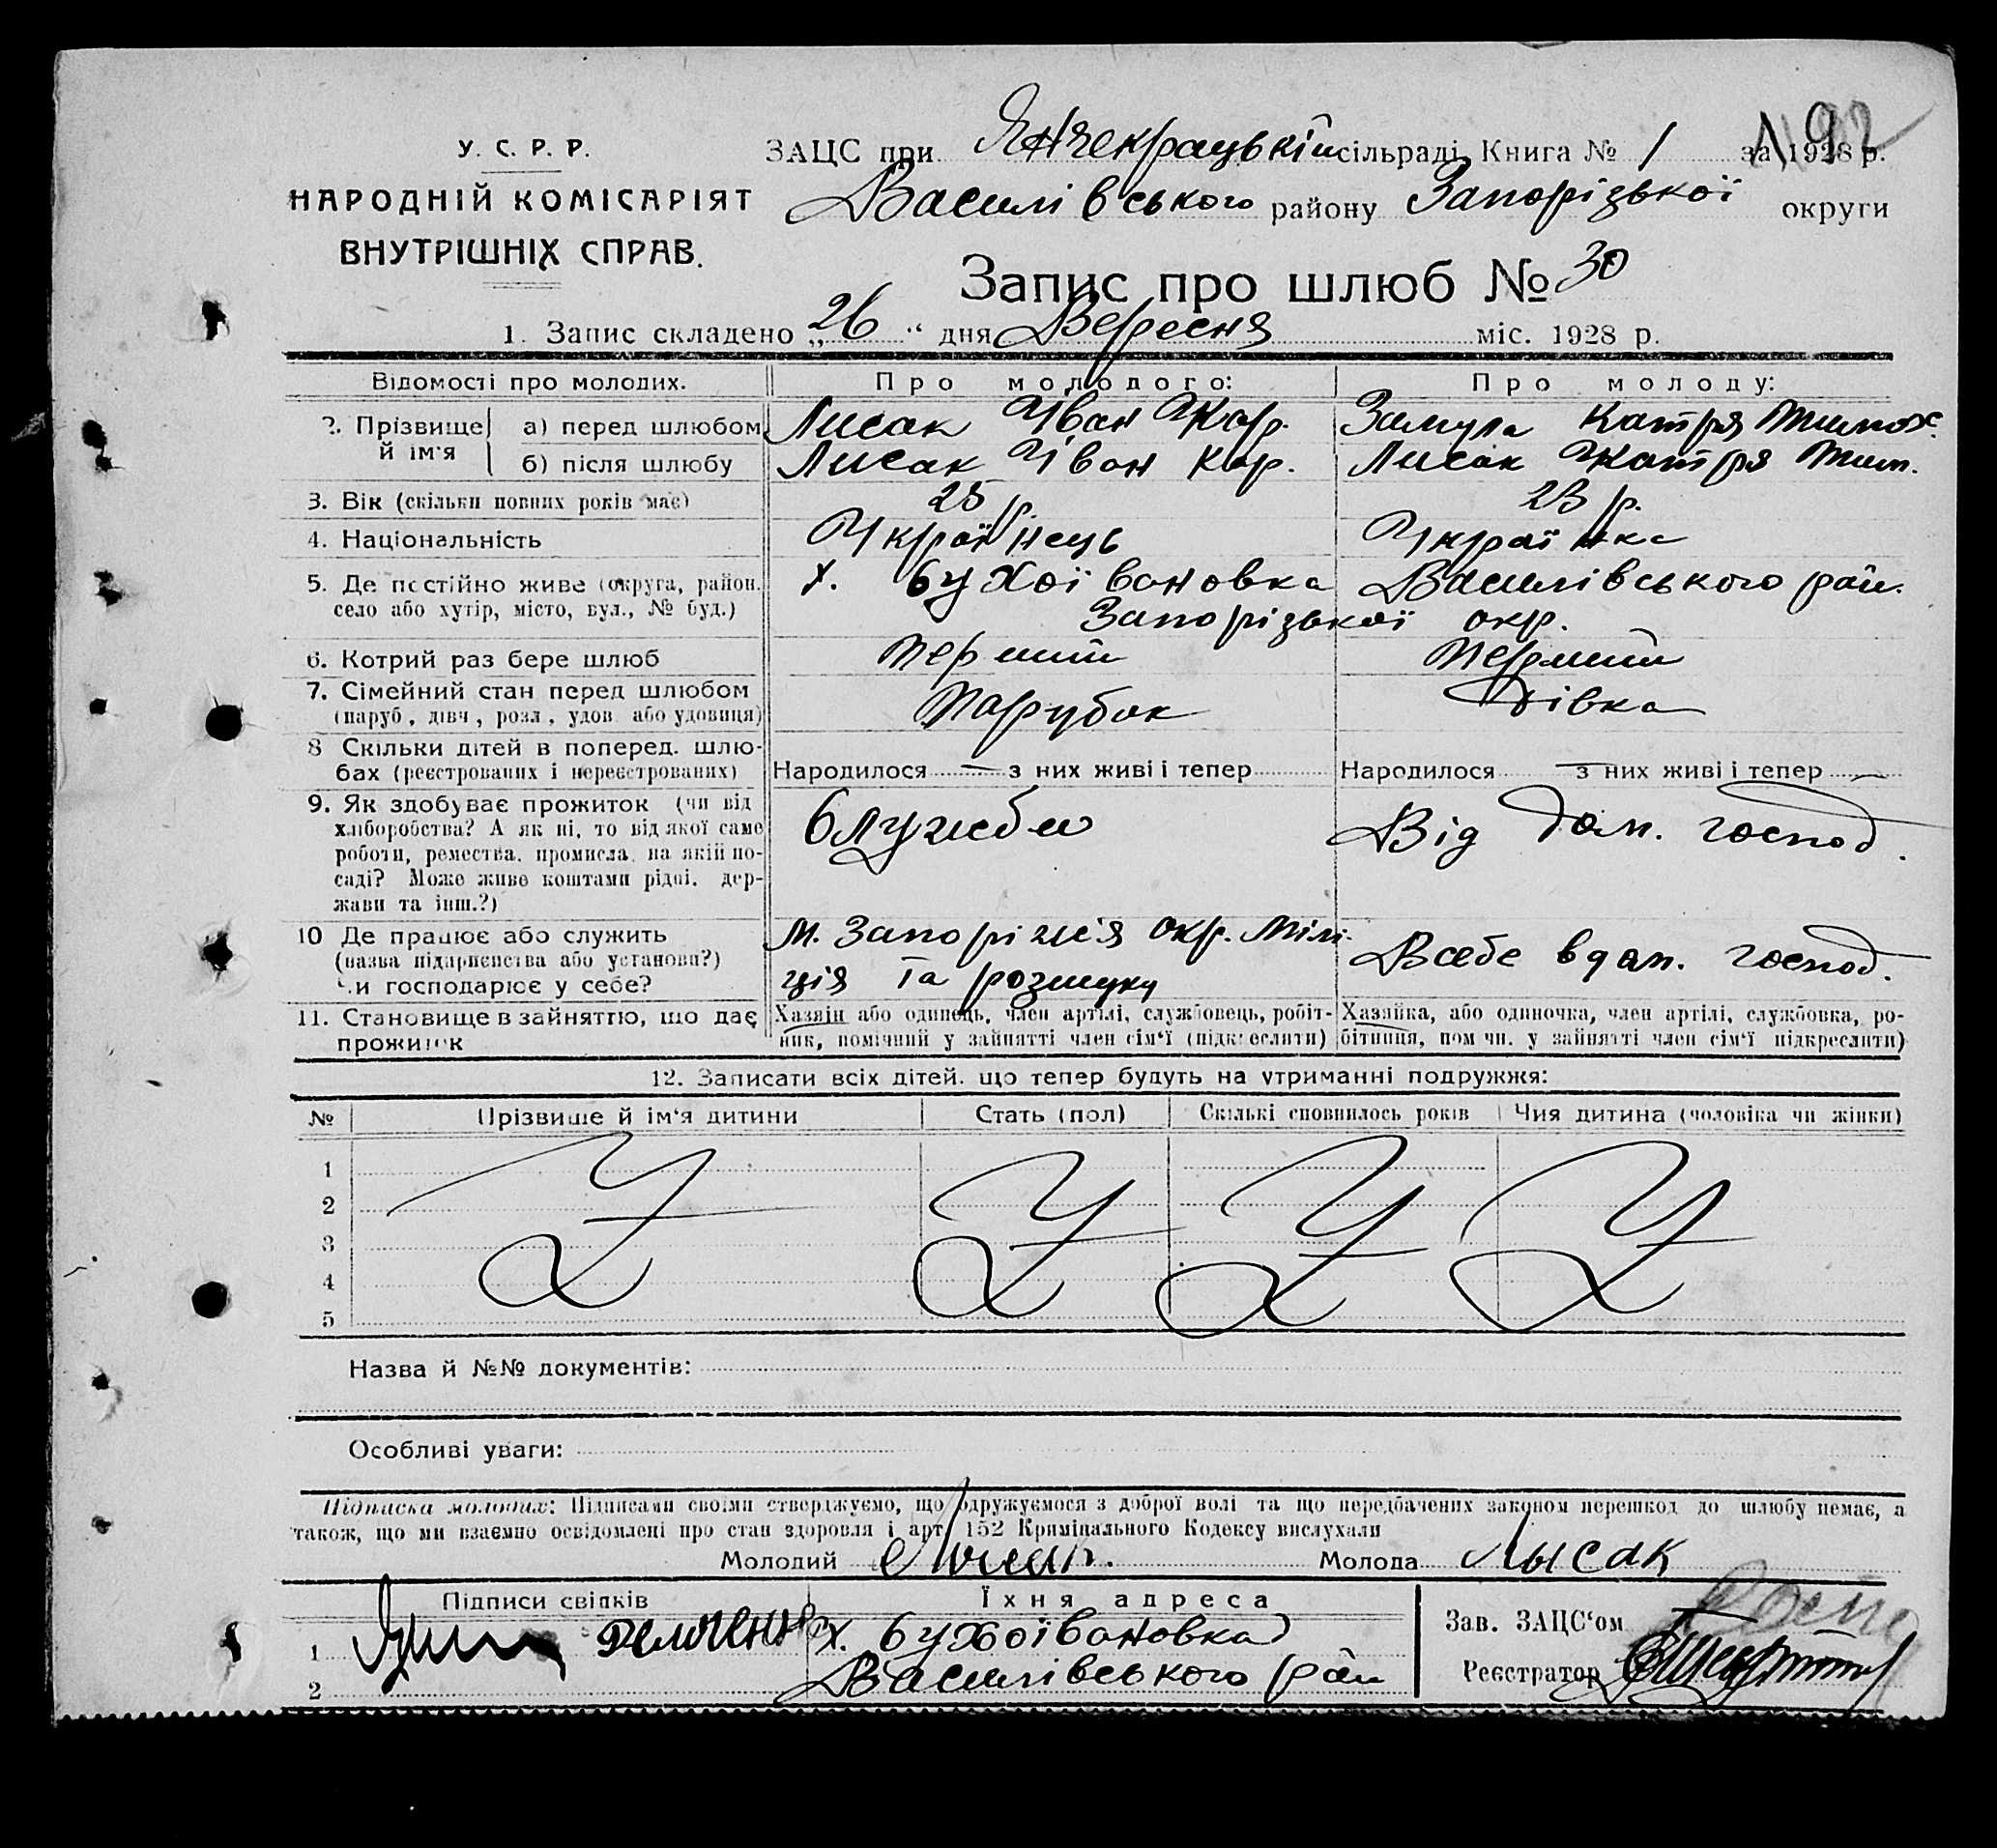 192
У. С. Р. Р.
НАРОДНІЙ КОМІСАРІЯТ
ВНУТРІШНІХ СПРАВ.
ЗАЦС при Янчекрацькій сільраді Книга № 1 за 1928 р.
Василівського району Запорізької округи
Запис про шлюб № 30
1. Запис складено „26“ дня Вересня міс. 1928 р.
Відомості про молодих. Про молодого: Про молоду:
2. Прізвище й ім'я
а) перед шлюбом Лисак Іван Кар. Замула Катря Тимох.
б) після шлюбу Лисак Іван Кар. Лисак Катря Тим.
3. Вік (скільки повних років має) 25 р. 23 р.
4. Національність Українець Українка
5. Де постійно живе (округа, район, х. Бухоївановка Василівського рай.
село або хутір, місто, вул., № буд.) Запорізької окр.
6. Котрий раз бере шлюб Перший Перший
7. Сімейний стан перед шлюбом Парубок Дівка
(паруб., дівч., розл., удов. або удовиця)
8 Скільки дітей в поперед. шлю-
бах (реєстрованих і нереєстрованих) Народилося — з них живі і тепер Народилося — з них живі і тепер —
9. Як здобуває прожиток (чи від Служби Від дом. господ.
хліборобства? А як ні, то від якої саме
роботи, ремества, промисла, на якій по-
саді? Може живе коштами рідні, дер-
жави та інш.?)
10 Де працює або служить м. Запоріжжя окр. Мілі- Всебе вдом. господ.
(назва підприємства або установи?) ція та розшуку
Чи господарює у себе?
11. Становище в зайняттю, що дає Хазяїн або одинець, член артілі, службовець, робіт- Хазяйка, або одиночка, член артілі, службовка, ро-
прожиток ник, помічний у зайнятті член сім'ї (підкреслити) бітниця, помічн. у зайнятті член сім'ї підкреслити)
12. Записати всіх дітей, що тепер будуть на утриманні подружжя:
№ Прізвище й ім'я дитини Стать (пол) Скількі сповнилось років Чия дитина (чоловіка чи жінки)
1
2
3
4
5
Назва й №№ документів:
Особливі уваги:
Підписка молодих: Підписами своїми стверджуємо, що одружуємося з доброї волі та що передбачених законом перешкод до шлюбу немає, а
також, що ми взаємно освідомлені про стан здоровля і арт. 152 Криміцального Кодексу вислухали
Молодий Лисак. Молода Лысак
Підписи свідків Їхня адреса Зав. ЗАЦС'ом
1 х. Бухоївановка
2 Василівського рай Реєстратор